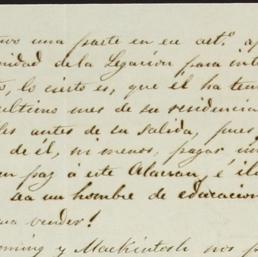 una parte en eu art.o
de la Legacion para
lo cierto es, que él ha
ultimo mes de su residencia
antes de su salida, pues
de él, ni menos, pagar
paz á este Alacran, é
aa un hombre de educacion
vender!
y Mackintosh nos